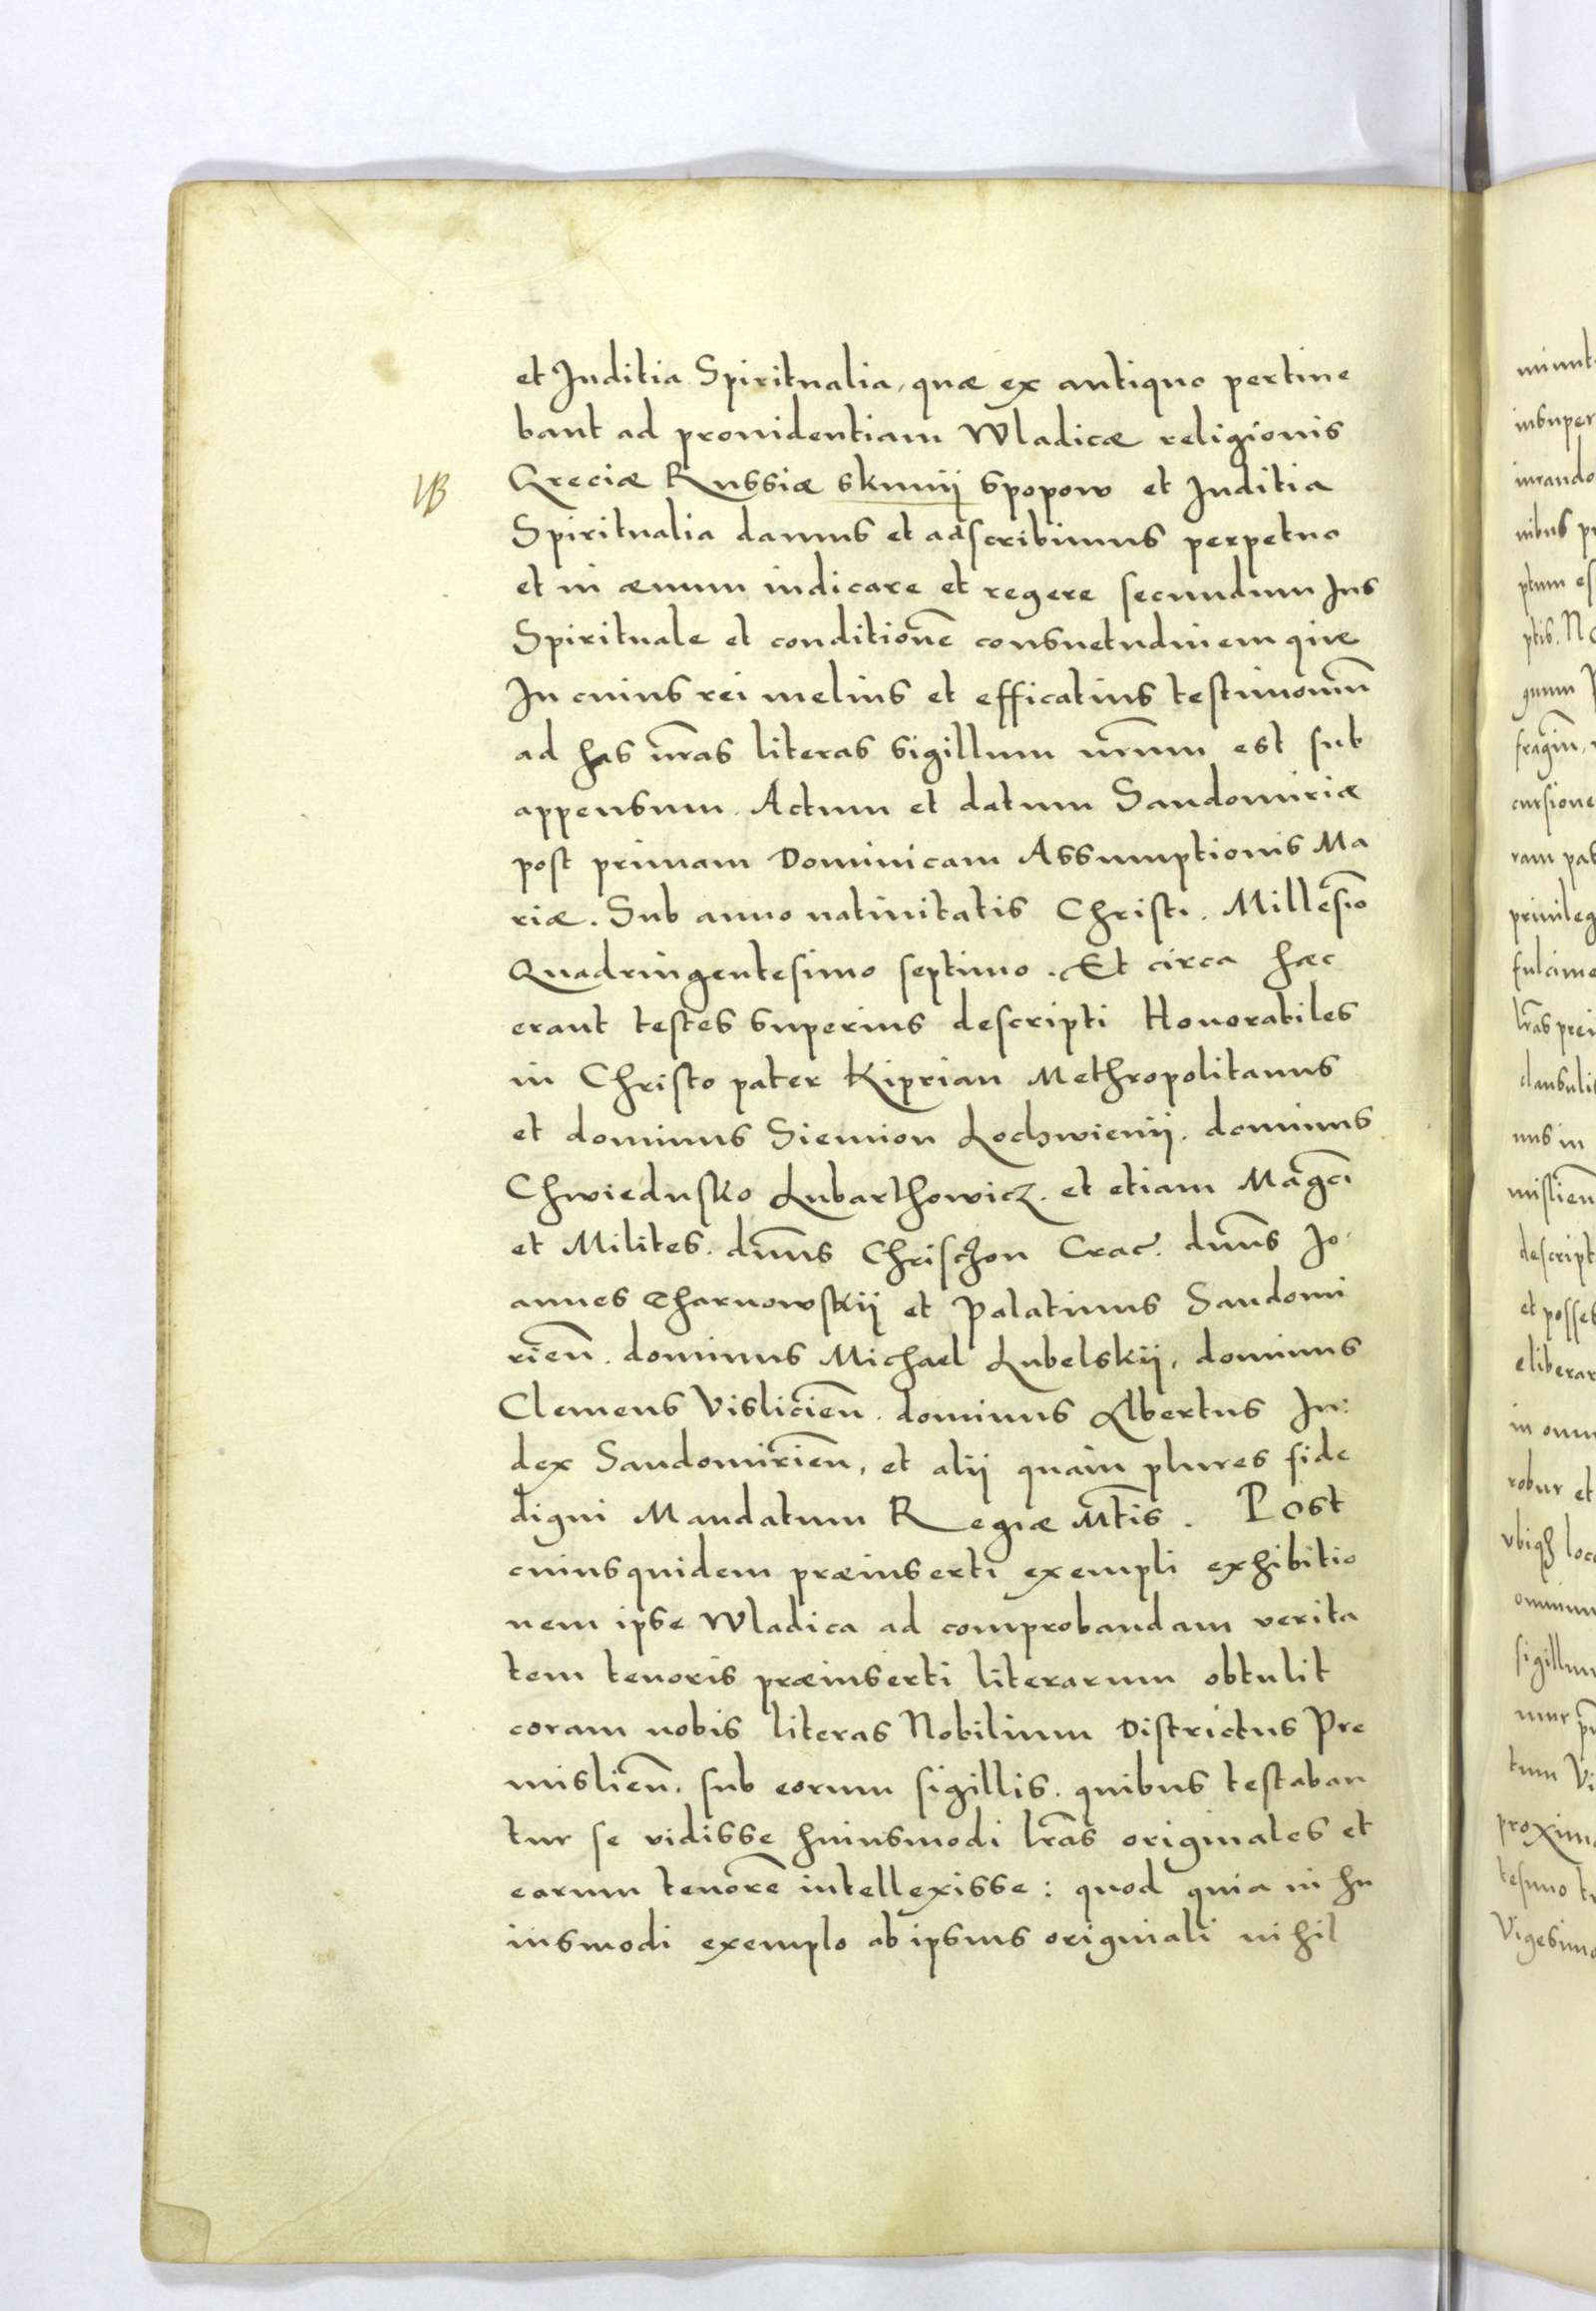 et Juditia Spiritualia, quæ ex antiquo pertine
bant ad prouidentiam Wladicæ religionis
NB
Greciæ Russiæ skunij spopow et Juditia
Spiritualia damus et adscribimus perpetuo
et in æuum iudicare et regere secundum Jus
Spirituale et conditionē consuetudinemque
In cuius rei melius et efficatius testimoniū
ad has nr̄as literas sigillum nr̄um est sub
appensum. Actum et datum Sandomiriæ
post primam Dominicam Assumptionis Ma
riæ. Sub anno natiuitatis Christi. Millesīo
Quadringentesimo septimo. Et circa hæc
erant testes superius descripti Honorabiles
in Christo pater Kiprian Methropolitanus
et dominus Siemion Lochwienij. dominus
Chwiedusko Lubarthowicz. et etiam Magcī
et Milites. dn̄us Chrisczon Crac. dn̄us Jo
annes Tharnowskij et Palatinus Sandomi
rień. dominus Michael Lubelskij, dominus
Clemens Visliciēn. dominus Albertus Ju:
dex Sandomiriēn, et alij quàm plures fide
digni Mandatum Regiæ Mt̄is. Post
cuiusquidem præinserti exempli exhibitio
nem ipse Wladica ad comprobandam verita
tem tenoris præinserti literarum obtulit
coram nobis literas Nobilium Districtus Pre
misliēn. sub eorum sigillis. quibus testaban
tur se vidisse huiusmodi lr̄as originales et
earum tenorē intellexisse: quod quia in hu
iusmodi exemplo ab ipsius originali nihil